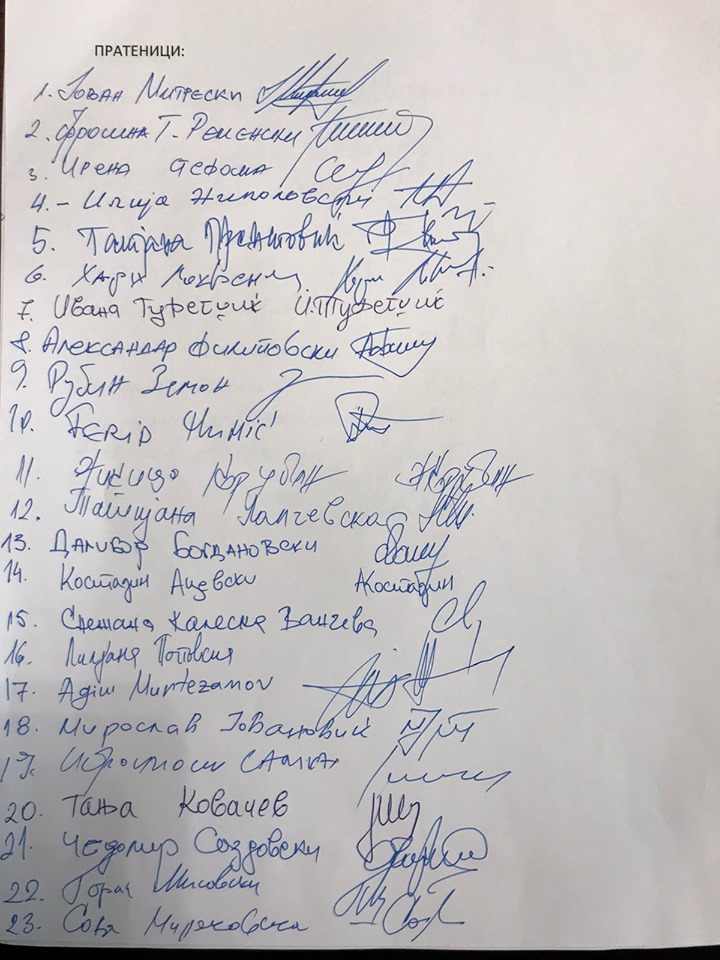 ПРАТЕНИЦИ:
1. Јован Митрески
2. Фросина Т. Ременски
3. Ирена Стефоска
4. - Илија Николовски
5. Татјана Прентовиќ
6. Хари Локвенец
7. Ивана Туфегџиќ И. Туфегџиќ
8. Александар Филиповски
9. Рубин Земон
10. FERID Muhić
11. Никица Корубин
12. Татијана Лалчевска
13. Далибор Богдановски
14. Костадин Ацевски Костадин
15. Снежана Калеска Ванчева
16. Лилјана Поповска
17. Adim Murtezanov
18. Мирослав Јовановиќ
19.
20. Тања Ковачев
21. Чедомир Саздовски
22. Горан Мисовски
23. Соња Мираковска